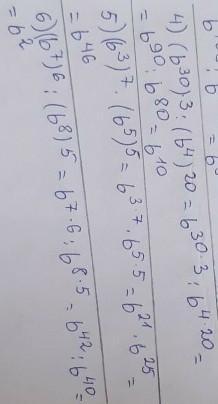 4) (b³⁰)3 : (b⁴)20 = b³⁰·³ : b⁴·²⁰ =
= b⁹⁰ : b⁸⁰ = b¹⁰
5) (b³)7 · (b⁵)5 = b³ ⁷ · b⁵·⁵ = b²¹ · b²⁵ =
= b⁴⁶
6) (b⁷)6 : (b⁸)5 = b⁷·⁶ : b⁸·⁵ = b⁴² : b⁴⁰ =
= b²